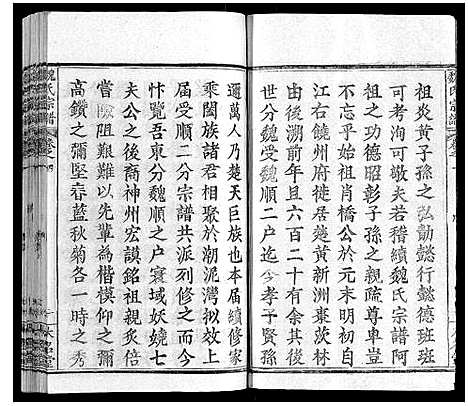 祖炎黄子孫之弘勳懿行懿德班班
可考焉可敬夫若稽續魏氏宗譜阿
祖之功德昭彰子孫之親疏尊卑也
不忘乎祖肖橋公於元末明初自
江右饒州府徙居黄新洲棗茨林
以洎清前年且六百二十餘
世分魏受順二户迄今孝子賢
邇萬人乃楚天巨族也本屆續修家
乘闔族諸君相聚於潮泥灣拟效
屆受順二分宗譜共派列修之而今
忭覽吾東分魏順之户寰域妖嬈七
夫公之後裔神州宏謨銘祖爰炙倍
嘗險阻艱難以先輩為楷模仰之彌
高鑽之彌堅春藍秋菊各一時之秀
魏氏宗譜
卷之
魏氏宗譜